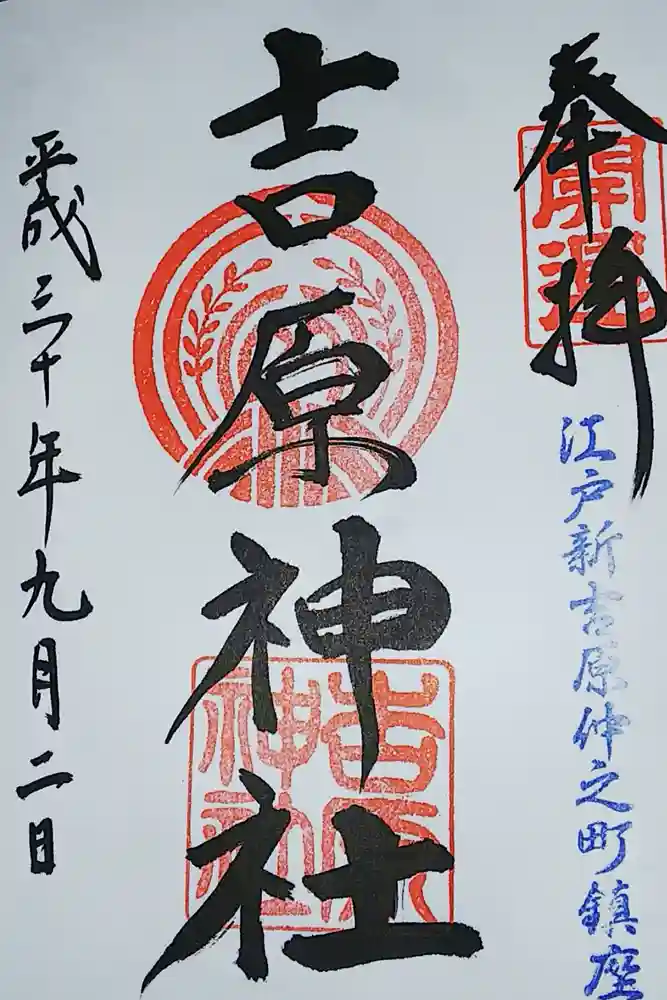 奉拝
開運
江戸新吉原仲之町鎮座
吉原神社
吉原
神社
平成三十年九月二日